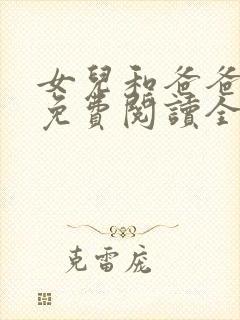 女兒和爸爸
免費閱讀全
克雷庞